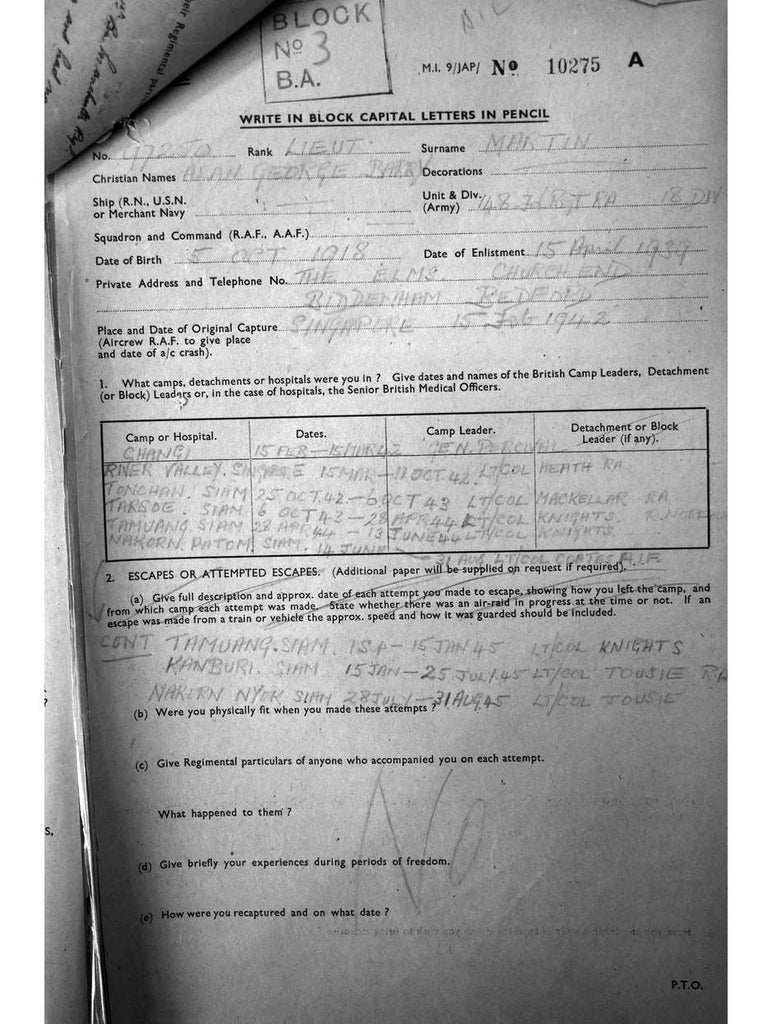 BLOCK
No 3
B.A.
M.I. 9/JAP/ No 10275 A
WRITE IN BLOCK CAPITAL LETTERS IN PENCIL
No. Rank LIEUT. Surname MARTIN
Christian Names ALAN GEORGE BARRY Decorations
Ship (R.N., U.S.N.
or Merchant Navy
Unit & Div.
(Army) 148 Fd Rgt RA 18 DIV
Squadron and Command (R.A.F., A.A.F.)
Date of Birth 5 OCT 1918 Date of Enlistment 15 April 1939
Private Address and Telephone No. THE ELMS. CHURCH END
BIDDENHAM
Place and Date of Original Capture SINGAPORE 15 Feb 1942
(Aircrew R.A.F. to give place
and date of a/c crash).
1. What camps, detachments or hospitals were you in ? Give dates and names of the British Camp Leaders, Detachment
(or Block) Leaders or, in the case of hospitals, the Senior British Medical Officers.
Camp or Hospital. Dates. Camp Leader. Detachment or Block
Leader (if any).
CHANGI 15 FEB – 15 MAR 42 GEN. PERCIVAL
RIVER VALLEY. 15 MAR – 11 OCT. 42. LT/COL HEATH RA
TONCHAN. SIAM 25 OCT. 42 – 6 OCT 43 LT/COL MACKELLAR RA
TARSOE. SIAM 6 OCT 43 – 28 APR 44 LT/COL KNIGHTS. R.
TAMUANG. SIAM 28 APR 44 – 13 JUNE 44 LT/COL KNIGHTS.
NAKORN. PATOM SIAM. 14 JUNE – 31 AUG LT/COL COATES A.I.F.
2. ESCAPES OR ATTEMPTED ESCAPES. (Additional paper will be supplied on request if required).
(a) Give full description and approx. date of each attempt you made to escape, showing how you left the camp, and
from which camp each attempt was made. State whether there was an air-raid in progress at the time or not. If an
escape was made from a train or vehicle the approx. speed and how it was guarded should be included.
CONT TAMUANG. SIAM. 1 SEP – 15 JAN 45 LT/COL KNIGHTS
KANBURI. SIAM 15 JAN – 25 JULY. 45 LT/COL TOUSIE RA
NAKORN NYOK SIAM 28 JULY – 31 AUG 45 LT/COL TOUSIE
(b) Were you physically fit when you made these attempts ?
(c) Give Regimental particulars of anyone who accompanied you on each attempt.
What happened to them ?
No
(d) Give briefly your experiences during periods of freedom.
(e) How were you recaptured and on what date ?
P.T.O.